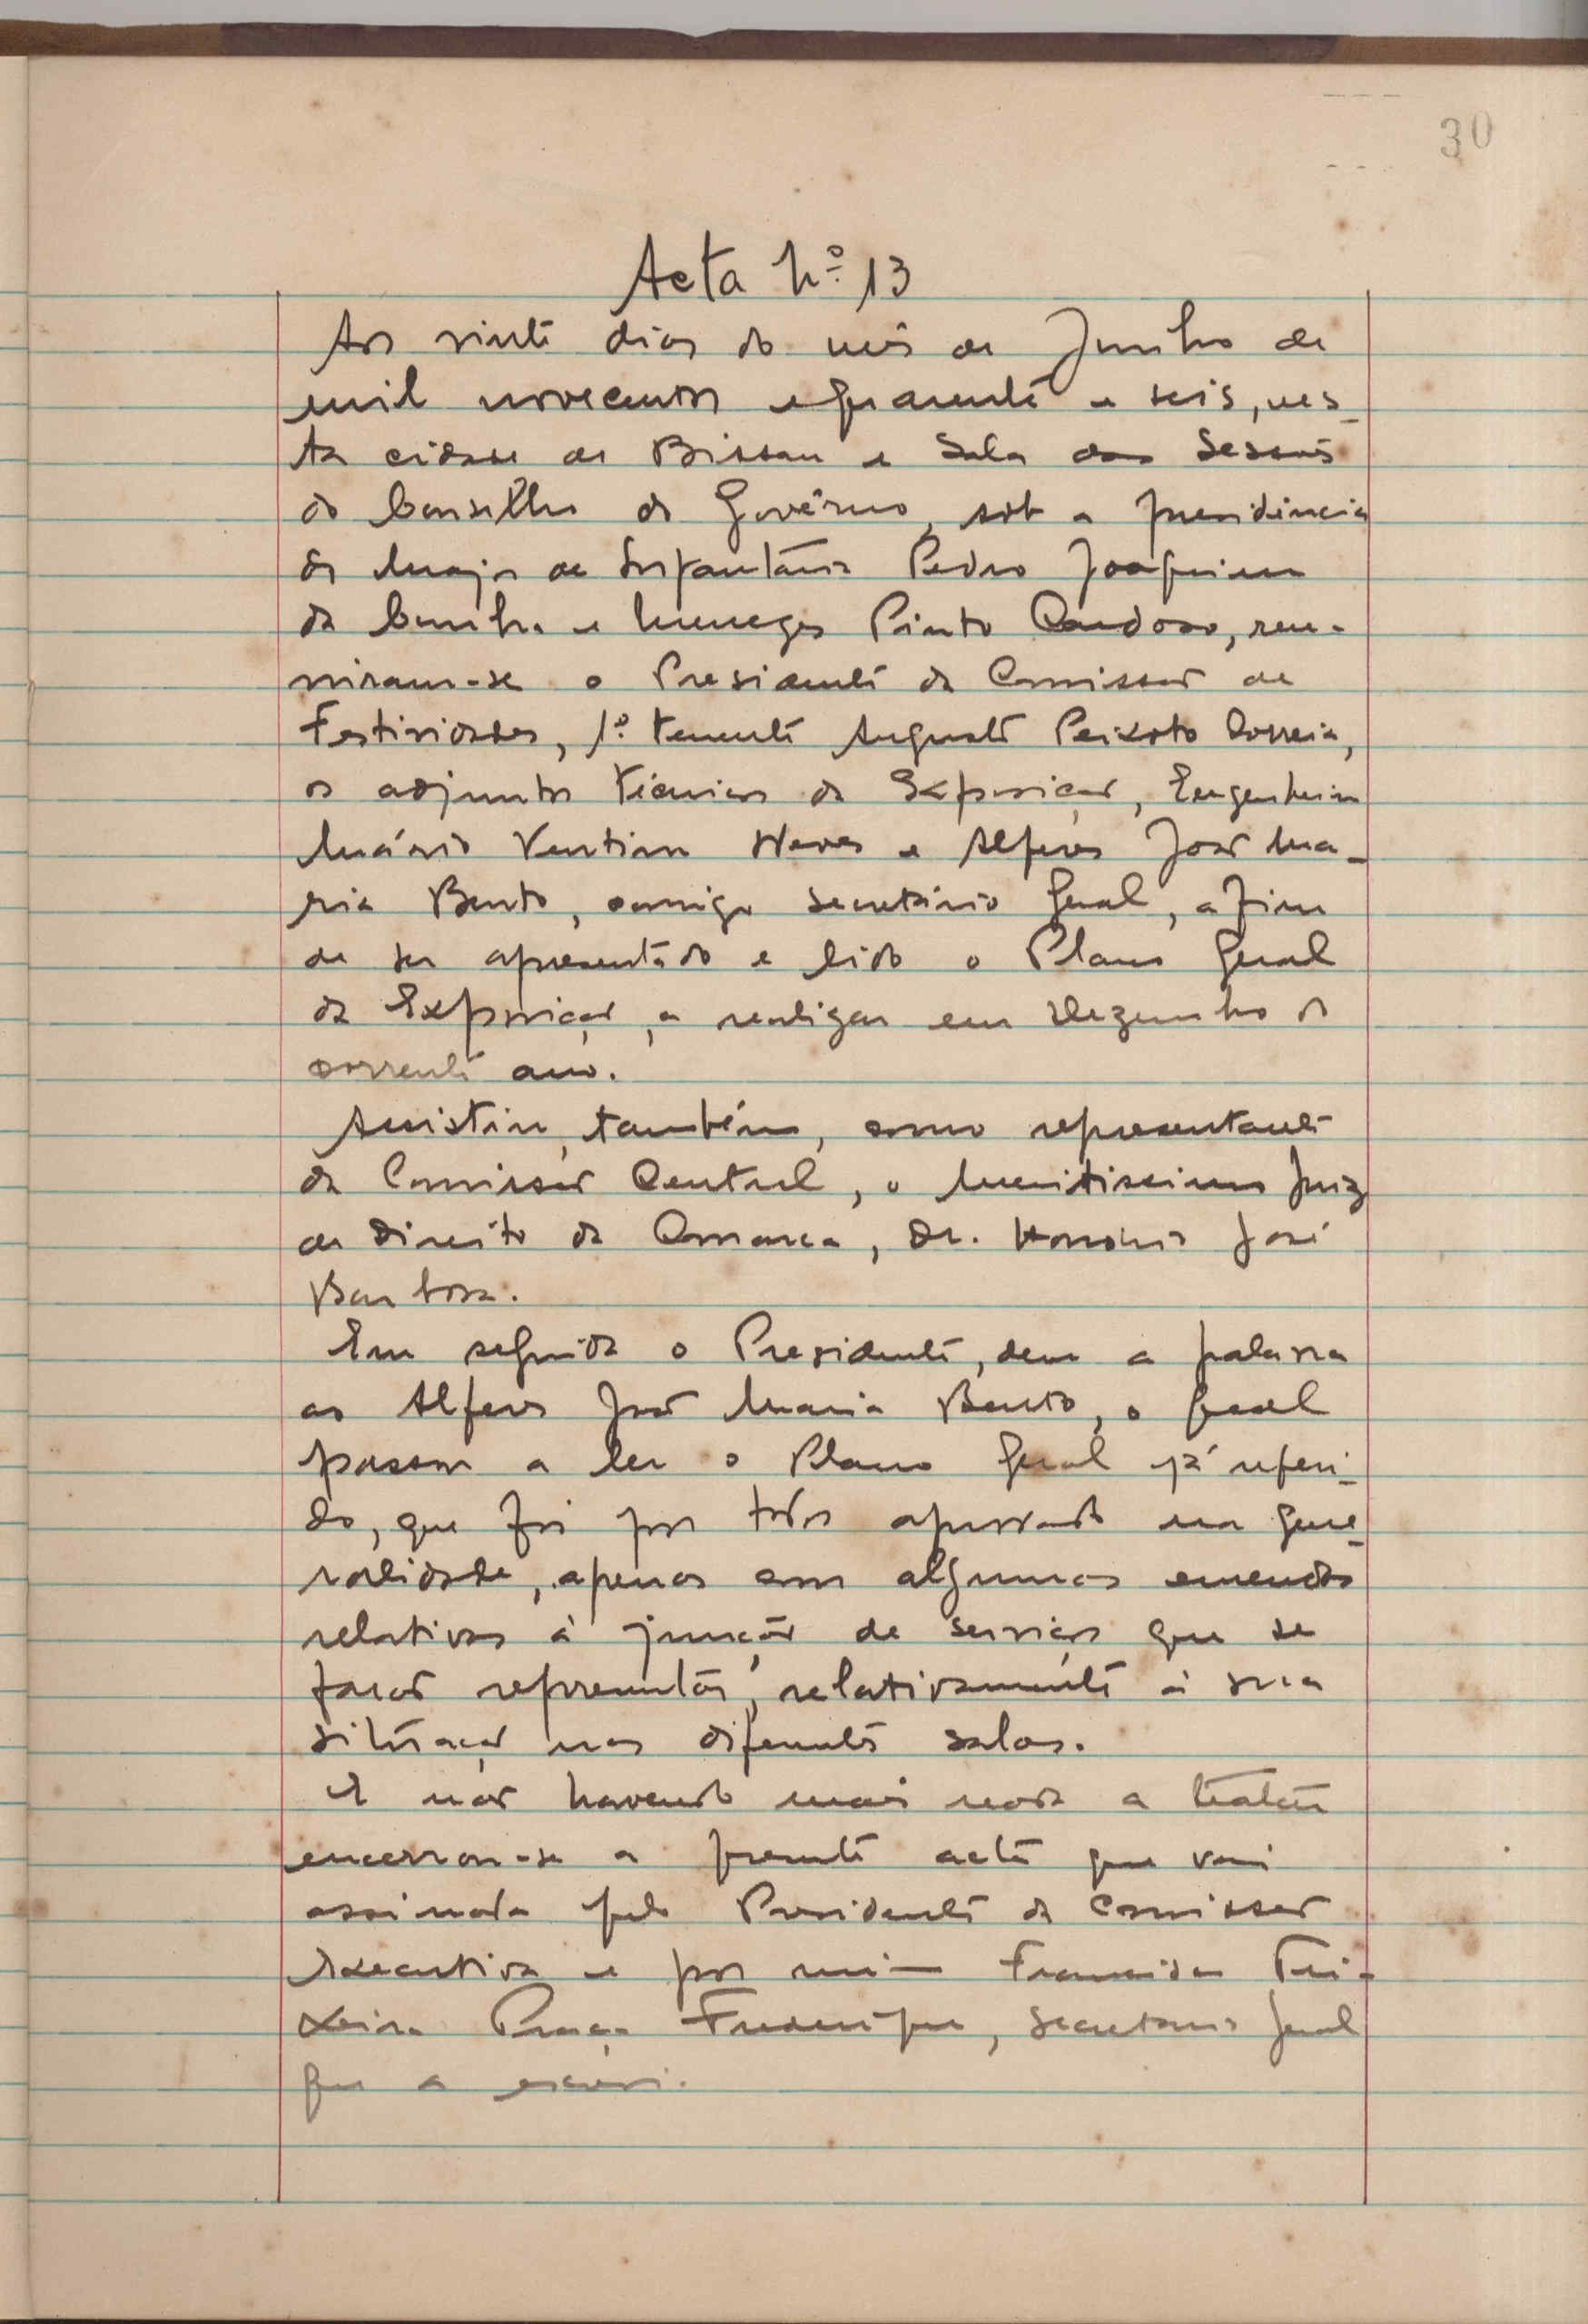 30
Acta Nº 13
Aos vinte dias do mês de Junho de
mil novecentos e quarenta e seis, nes-
ta cidade de Bissau e Sala das Sessões
do Conselho do Govêrno, sob a presidência
do Major de Infantaria Pedro Joaquim
da Cunha e Menezes Pinto Cardoso, reu-
niram-se o Presidente da Comissão de
Festividades, 1º Tenente Augusto Peixoto Correia,
os adjuntos técnicos da Exposição, Engenheiro
Mário Neves e Alferes José Ma-
ria Bento, comigo secretário geral, a fim
de ser apresentado e lido o Plano Geral
da Exposição, a realizar em Dezembro do
corrente ano.
Assistiu, também, como representante
da Comissão Central, o Meritissimo Juiz
de Direito da Comarca, Dr. Honório José
Barbosa.
Em seguida o Presidente, deu a palavra
ao Alferes José Maria Bento, o qual
passou a ler o Plano Geral já referi-
do, que foi por todos aprovado na gene-
ralidade, apenas com algumas emendas
relativas à junção de serviços que se
façam representar, relativamente à sua
situação nas diferentes salas.
E não havendo mais nada a tratar
encerrou-se a presente acta que vai
assinada pelo Presidente da Comissão
Executiva e por mim Tei-
xeira secretário geral
que a escrevi.